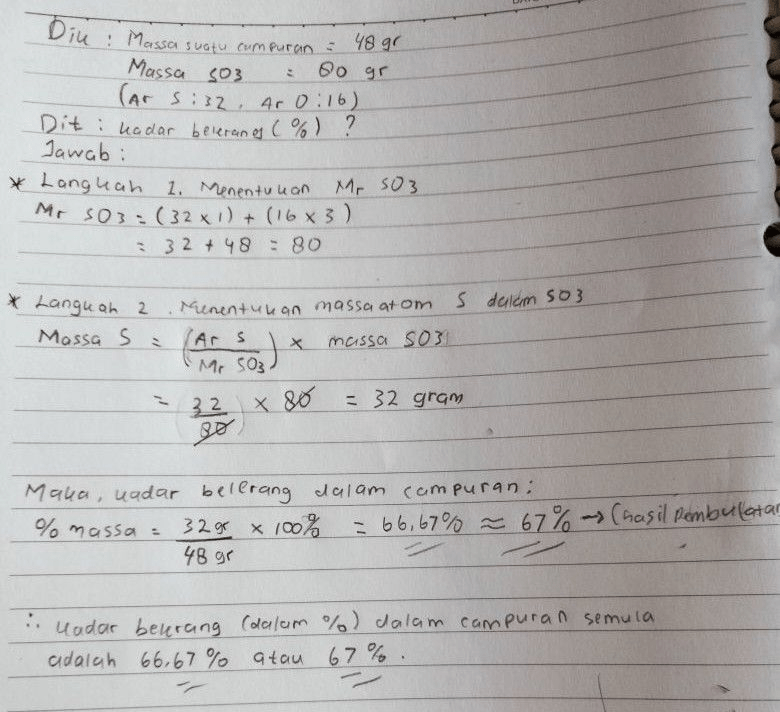 Dik : Massa suatu campuran = 48 gr
Massa SO3 = 80 gr
(Ar S : 32, Ar O : 16)
Dit : kadar belerang (%) ?
Jawab :
* Langkah 1. Menentukan Mr SO3
Mr SO3 = (32 x 1) + (16 x 3)
= 32 + 48 = 80
* Langkah 2. Menentukan massa atom S dalam SO3
Massa S = (Ar S / Mr SO3) x massa SO3
= 32/80 x 80 = 32 gram
Maka, kadar belerang dalam campuran :
% massa = 32 gr / 48 gr x 100% = 66,67% ≈ 67% → (hasil pembulatan
∴ kadar belerang (dalam %) dalam campuran semula
adalah 66,67 % atau 67 %.